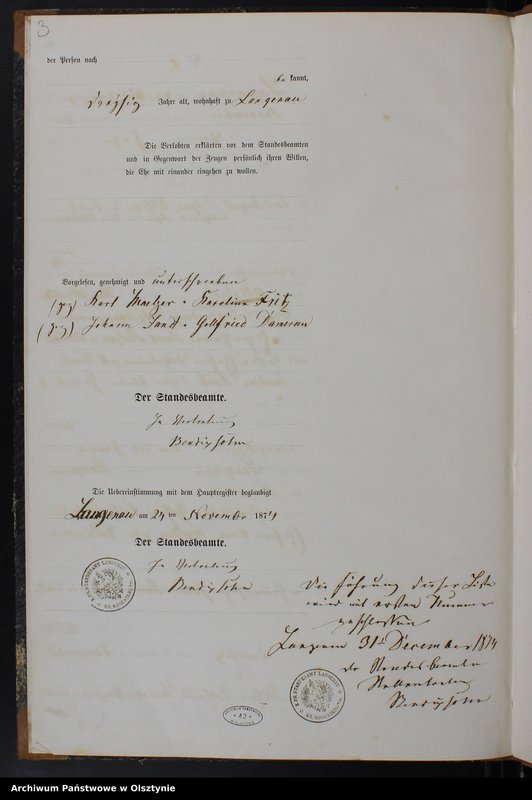 3
der Person nach
be kannt,
dreißig Jahre alt, wohnhaft zu Langenau
Die Verlobten erklärten vor dem Standesbeamten
und in Gegenwart der Zeugen persönlich ihren Willen,
die Ehe mit einander eingehen zu wollen.
Vorgelesen, genehmigt und unterschrieben
(gez) Karl Karoline Fritz
(gez) Johann Gottfried Damerau
Der Standesbeamte.
In Vertretung
Die Uebereinstimmung mit dem Hauptregister beglaubigt
Langenau am 24 ten November 1874
Der Standesbeamte.
In Vertretung
KPR. STANDESAMT LANGENAU
Die Führung dieser Liste
wird mit
geschlossen
Langenau 31t December 1874
der Standesbeamte
KPR. STANDESAMT LANGENAU
42
Archiwum Państwowe w Olsztynie